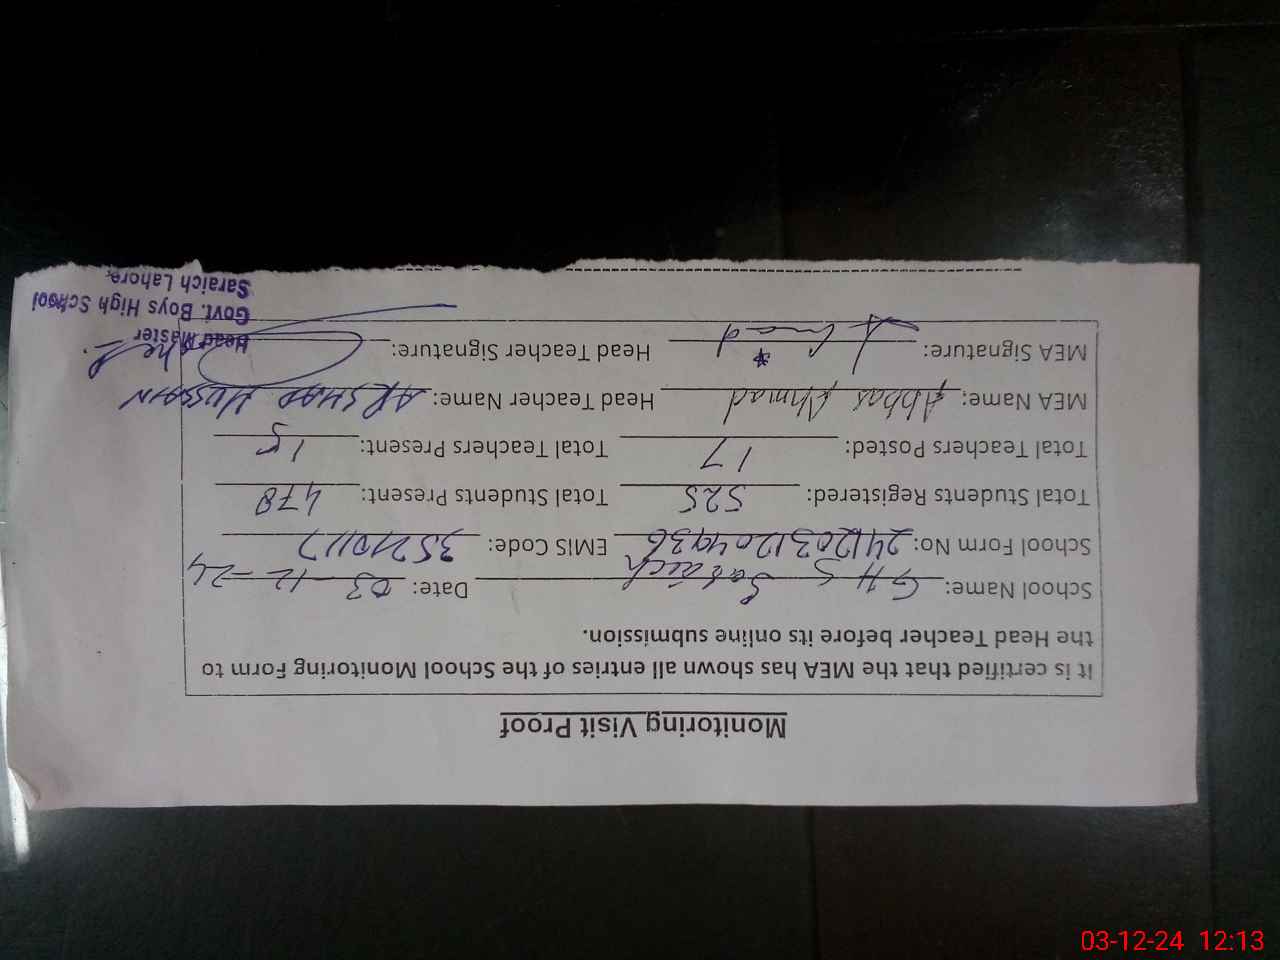 Monitoring Visit Proof
It is certified that the MEA has shown all entries of the School Monitoring Form to
the Head Teacher before its online submission.
School Name: GHS Saraich Date: 03-12-24
School Form No: 2412031204936 EMIS Code: 35210117
Total Students Registered: 525 Total Students Present: 478
Total Teachers Posted: 17 Total Teachers Present: 15
MEA Name: Abbas Ahmad Head Teacher Name: ARSHAD HUSSAIN
MEA Signature: Ahmad Head Teacher Signature:
Head Master
Govt. Boys High School
Saraich Lahore.
03-12-24 12:13